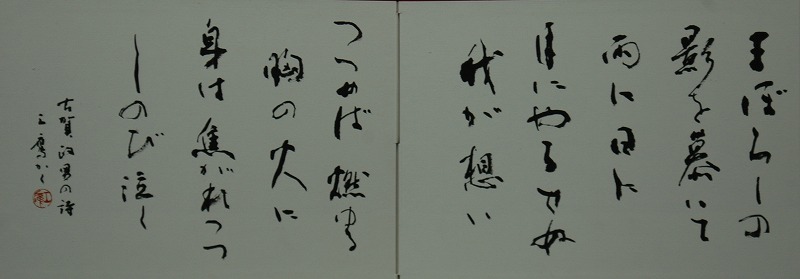 まぼろしの
影を慕いて
雨に日に
月にやるせぬ
我が想い
つつめば燃ゆる
胸の火に
身は焦がれつつ
しのび泣く
古賀政男の詩
かく